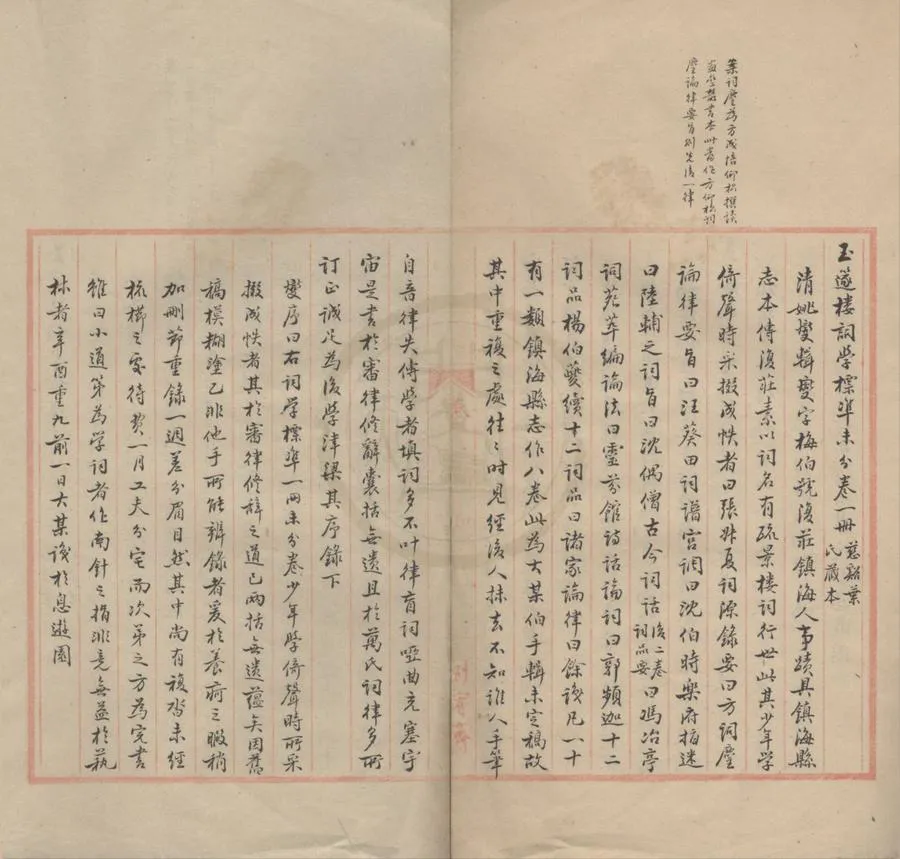 案词麈为方成培仰松撰读
画斋丛书本此书作方仰松词
麈论律要旨列先后一律
玉邃楼詞學標準未分卷一冊 慈谿葉氏藏本
清姚燮輯燮字梅伯號復莊鎮海人事蹟具鎮海縣
志本傳復莊素以詞名有疏景樓詞行世此其少年學
倚聲時采掇成帙者曰張叔夏詞源錄要曰方詞麈
論律要旨曰汪葵田詞譜宮調曰沈伯時樂府指迷
曰陸輔之詞旨曰沈偶僧古今詞話後二卷詞品要曰馮冶亭
詞苑萃編論法曰靈芬館詩話論詞曰郭頻迦十二
詞品楊伯夔續十二詞品曰諸家論律曰餘識凡一十
有一類鎮海縣志作八卷此為大某伯手輯未定稿故
其中重複之處往々時見經後人抹去不知誰人手筆
自音律失傳學者填詞多不叶律盲詞啞曲充塞宇
宙是書於審律修辭囊括無遺且於萬氏詞律多所
訂正誠足為後學津梁其序錄下
燮序曰右詞學標準一冊未分卷少年學倚聲時所采
掇成帙者其於審律修辭之道已兩括無遺蘊矣因舊
稿模糊塗乙非他手所能辨錄者爰於養疴之暇稍
加刪節重錄一過差分眉目然其中尚有複沓未經
梳櫛之處待費一月工夫分宅而次第之方為完書
雖曰小道第為學詞者作南針之指非竟無益於藝
林者辛酉重九前一日大某識於息遊園